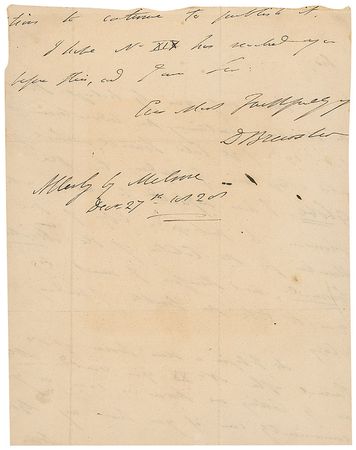 tions to continue to publish it.
I hope No XIX has reached you
before this, and I am &c.
Ever Most Faithfully
D Brewster
Allerly by Melrose
Decr 27th 1828